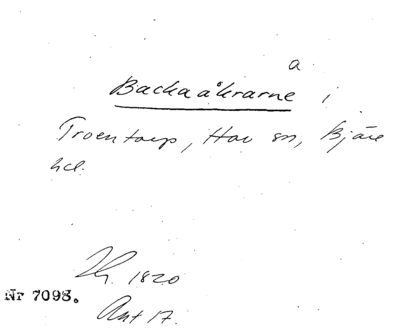 a
Backaåkrarne i
Troentorp, Hov sn, Bjäre
hd.
Lh. 1820
Nr 7098.
Akt 17.